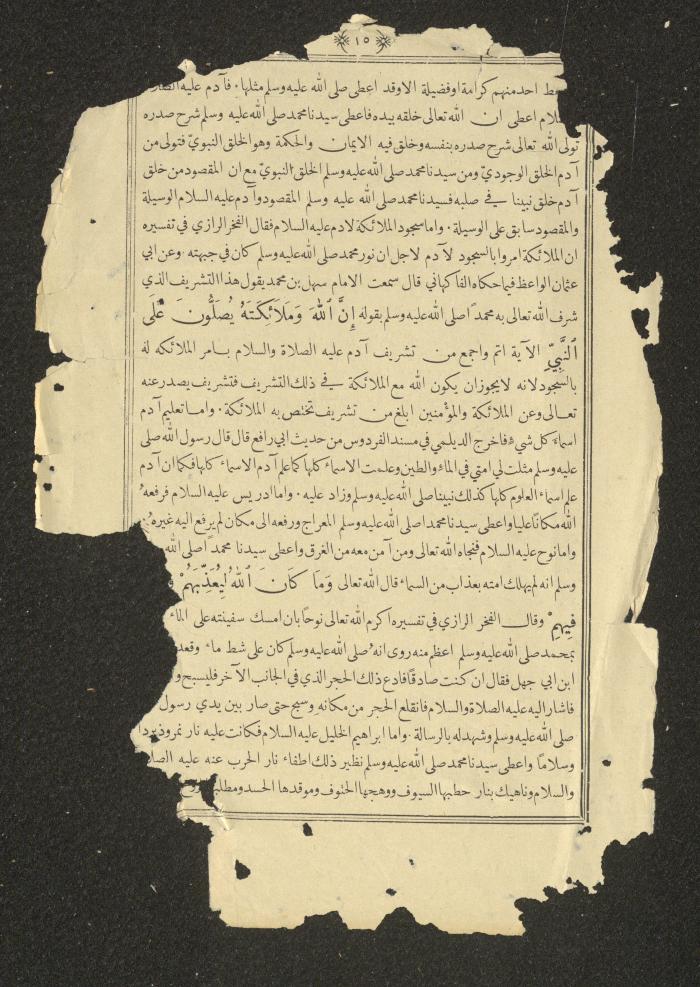 ١٥
احد منهم كرامة او فضيلة الا وقد اعطى صلى الله عليه وسلم مثلها. فآدم عليه
اعطى ان الله تعالى خلقه بيده فاعطى سيدنا محمد صلى الله عليه وسلم شرح صدره
تولى الله تعالى شرح صدره بنفسه وخلق فيه الايمان والحكمة وهو الخلق النبويّ فتولى من
آدم الخلق الوجوديّ ومن سيدنا محمد صلى الله عليه وسلم الخلق النبويّ مع ان المقصود من خلق
آدم خلق نبينا في صلبه فسيدنا محمد صلى الله عليه وسلم المقصود وآدم عليه السلام الوسيلة
والمقصود سابق على الوسيلة. واما سجود الملائكة لادم عليه السلام فقال الفخر الرازي في تفسيره
ان الملائكة امروا بالسجود لآدم لاجل ان نور محمد صلى الله عليه وسلم كان في جبهته. وعن ابي
عثمان الواعظ فيما حكاه الفاكهاني قال سمعت الامام سهل بن محمد يقول هذا التشريف الذي
شرف الله تعالى به محمدًا صلى الله عليه وسلم بقوله إِنَّ ٱللّٰهَ وَمَلَائِكَتَهُ يُصَلُّونَ عَلَى
ٱلنَّبِيِّ الآية اتم واجمع من تشريف آدم عليه الصلاة والسلام بامر الملائكه له
بالسجود لانه لا يجوز ان يكون الله مع الملائكة في ذلك التشريف فتشريف يصدر عنه
تعالى وعن الملائكة والمؤمنين ابلغ من تشريف تختص به الملائكة. واما تعليم آدم
اسماء كل شيء فاخرج الديلمي في مسند الفردوس من حديث ابي رافع قال قال رسول الله صلى
عليه وسلم مثلت لي امتي في الماء والطين وعلمت الاسماء كلها كما علم آدم الاسماء كلها فكما ان آدم
علم اسماء العلوم كلها كذلك نبينا صلى الله عليه وسلم وزاد عليه. واما ادريس عليه السلام فرفعه
الله مكانًا عليا واعطى سيدنا محمدا صلى الله عليه وسلم المعراج ورفعه الى مكان لم يرفع اليه غيره.
واما نوح عليه السلام فنجاه الله تعالى ومن آمن معه من الغرق واعطى سيدنا محمدًا صلى الله
وسلم انه لم يهلك امته بعذاب من السماء قال الله تعالى وَمَا كَانَ ٱللّٰهُ لِيُعَذِّبَهُمْ
فِيهِمْ وقال الفخر الرازي في تفسيره اكرم الله تعالى نوحًا بان امسك سفينته على الماء
بمحمد صلى الله عليه وسلم اعظم منه روى انه صلى الله عليه وسلم كان على شط ماء وقعد
ابن ابي جهل فقال ان كنت صادقًا فادع ذلك الحجر الذي في الجانب الآخر فليسبح
فاشار اليه عليه الصلاة والسلام فانقلع الحجر من مكانه وسبح حتى صار بين يدي رسول
صلى الله عليه وسلم وشهد له بالرسالة. واما ابراهيم الخليل عليه السلام فكانت عليه نار نمروذ بردا
وسلامًا واعطى سيدنا محمد صلى الله عليه وسلم نظير ذلك اطفاء نار الحرب عنه عليه
والسلام وناهيك بنار حطبها السيوف ووهجها الحتوف وموقدها الحسد